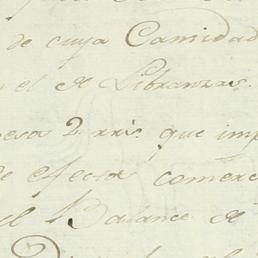 de cuya Cantidad
el de Libranzas
pesos 2 rris. que imp
de efectos comerc
el Balance de